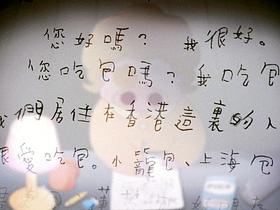 您好嗎? 我很好。
您吃包嗎? 我吃包
我們居住在香港這裏的人
很愛吃包。小籠包、上海包